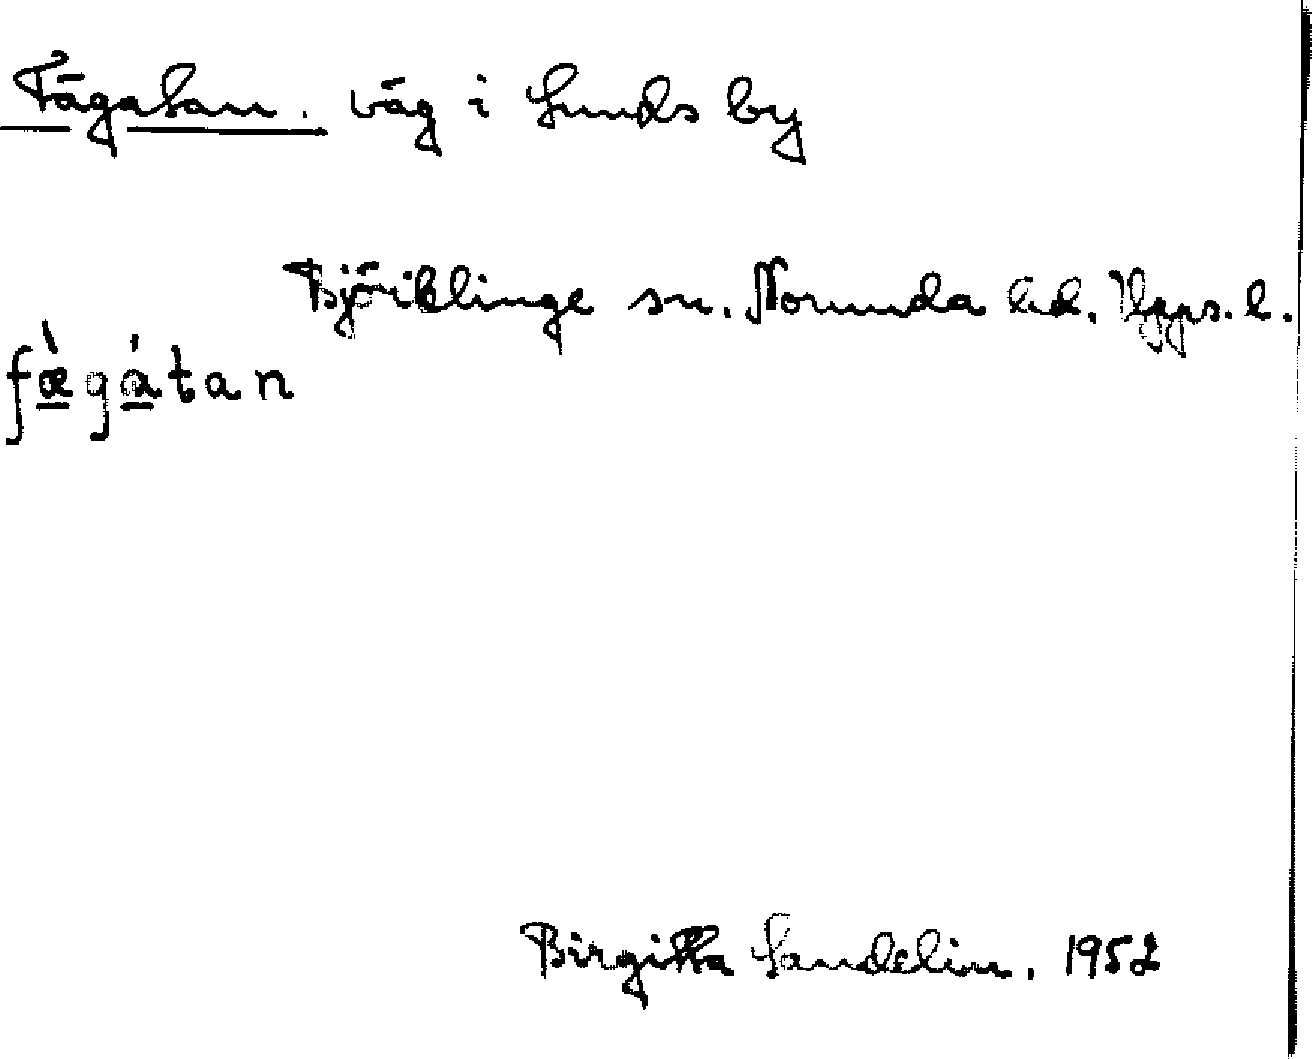 Fägatan. väg i Lunds by
Björklinge sn. Norunda hd. Upps. l.
fæ̀gátan
Birgitta Sandelin. 1952